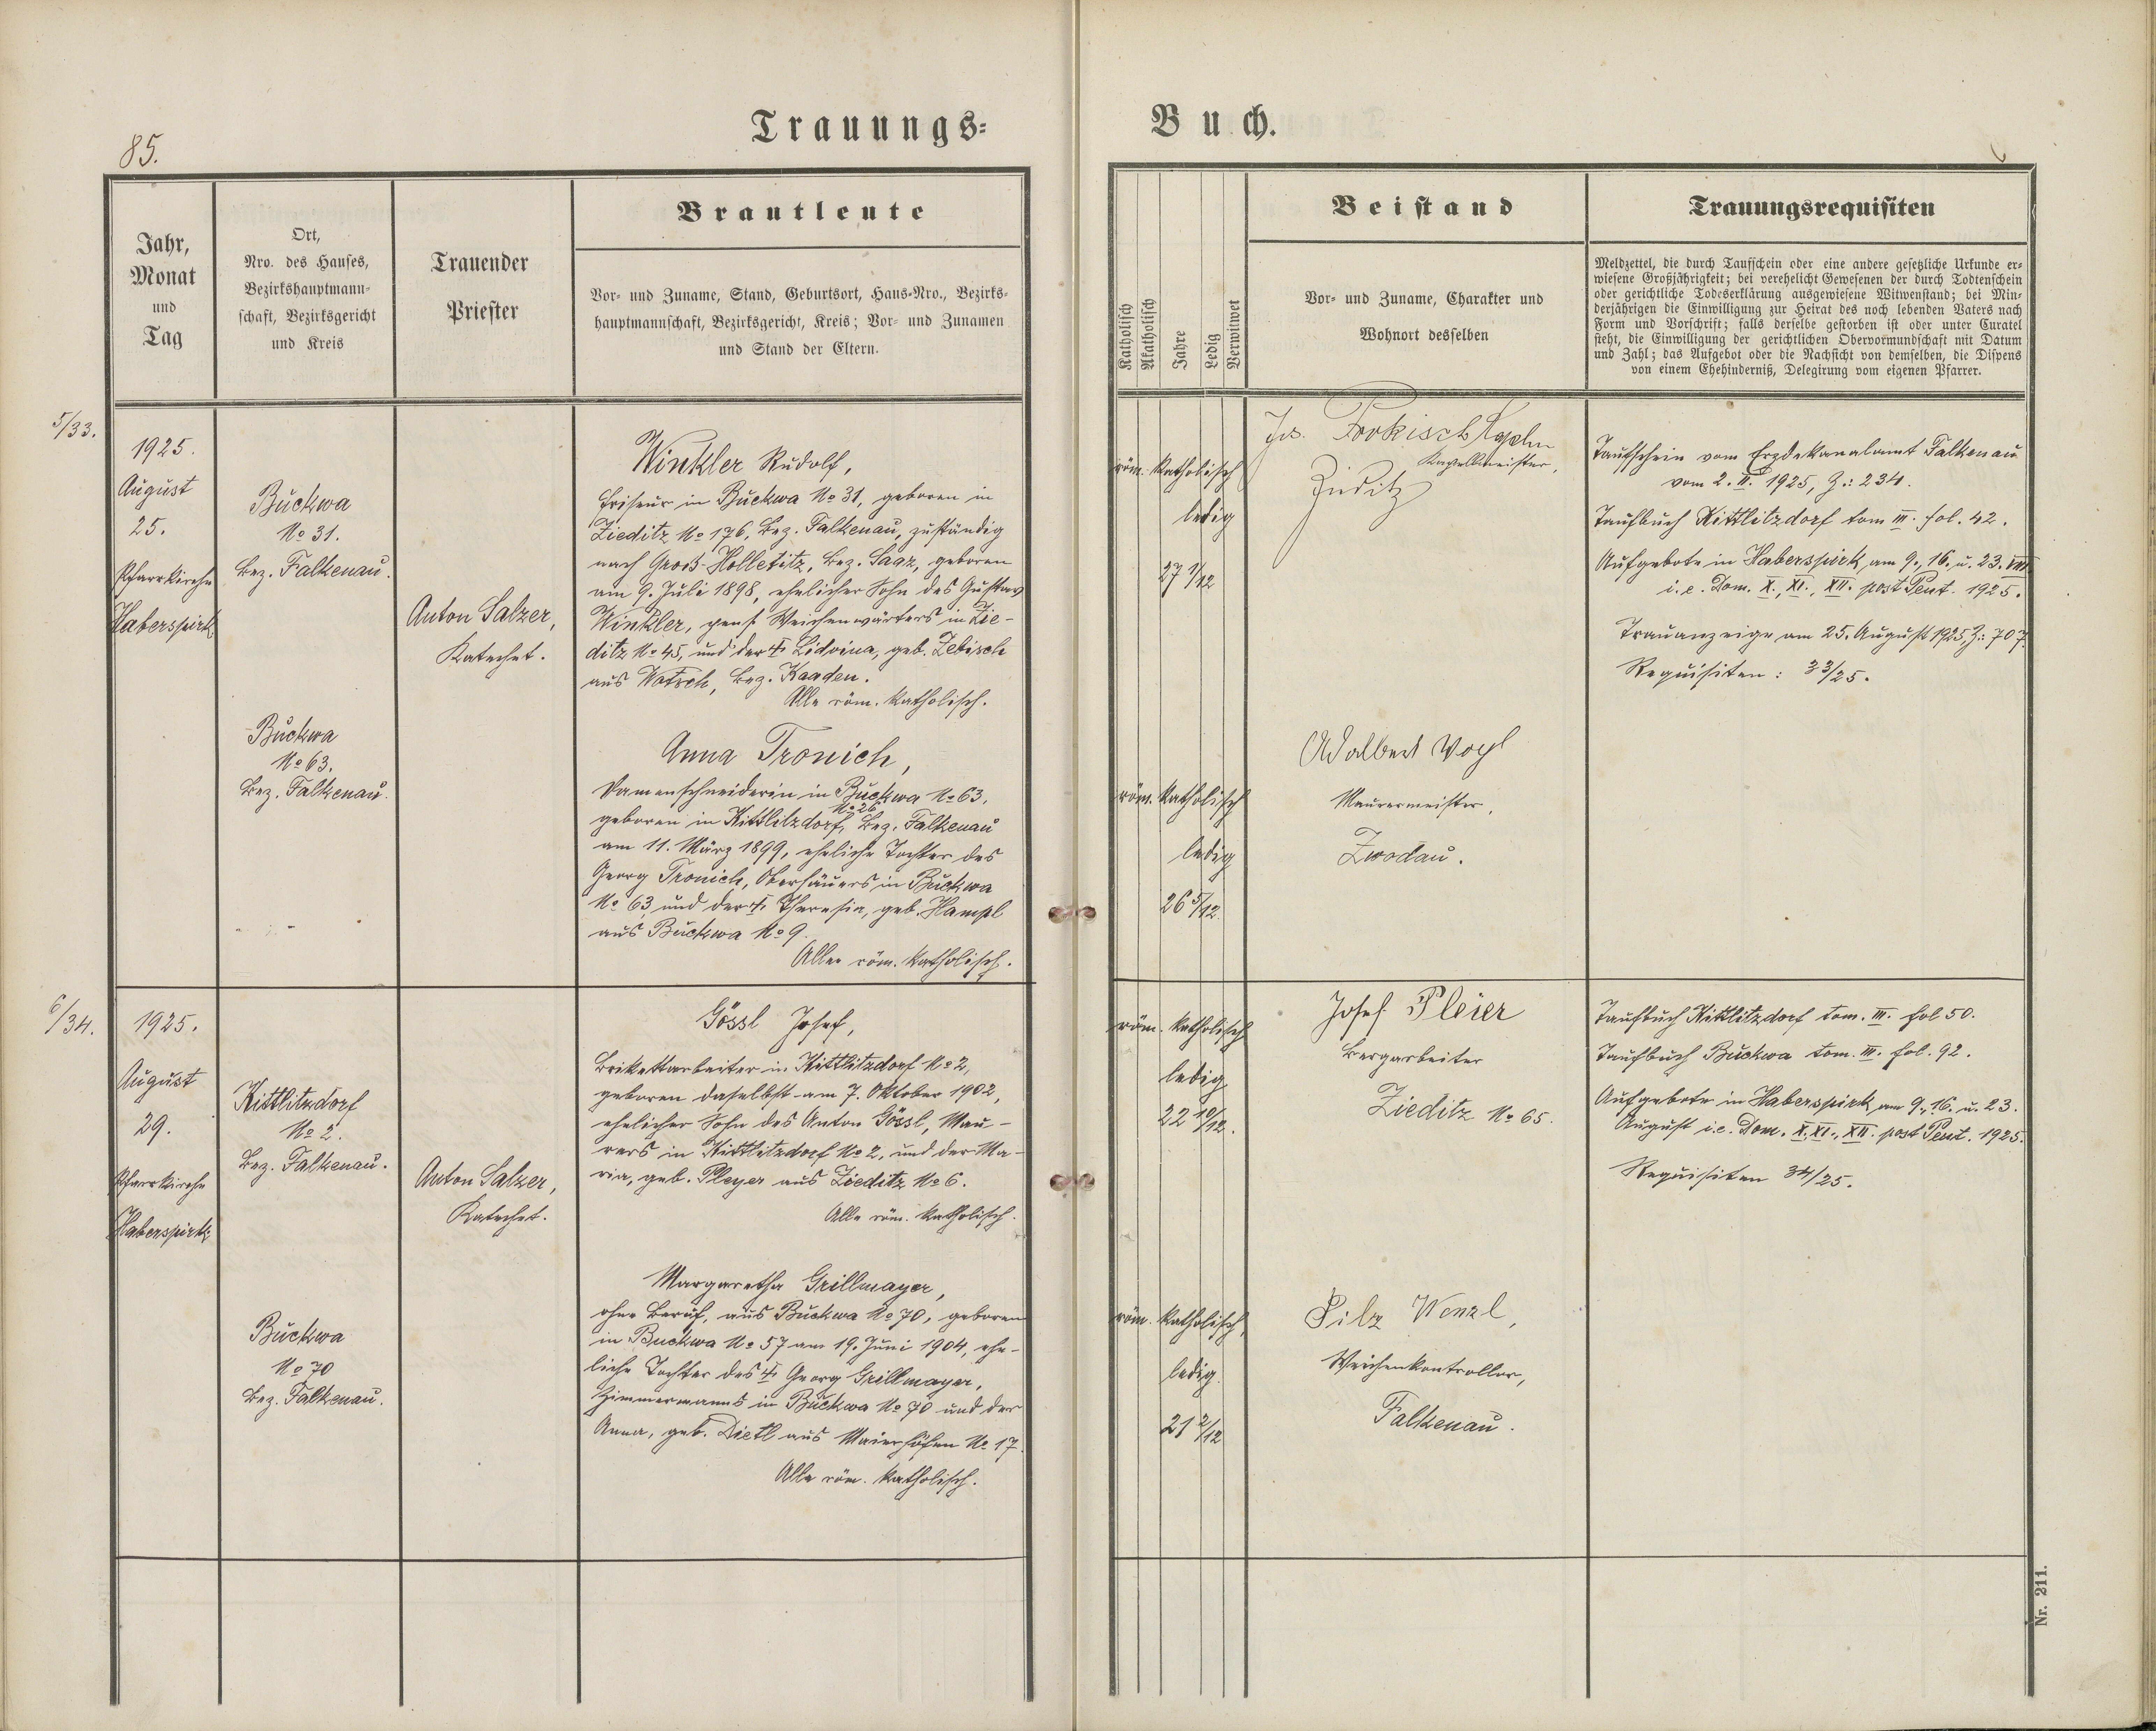 85.
Trauungs-
Buch.
Jahr,
Monat
und
Tag
Ort,
Nro. des Hauses,
Bezirkshauptmann-
schaft, Bezirksgericht
und Kreis
Trauender
Priester
Brautleute
Vor- und Zuname, Stand, Geburtsort, Haus-Nro., Bezirks-
hauptmannschaft, Bezirksgericht, Kreis; Vor- und Zunamen
und Stand der Eltern.
Katholisch
Akatholisch
Jahre
Ledig
Verwitwet
Beistand
Vor- und Zuname, Charakter und
Wohnort desselben
Trauungsrequisiten
Meldzettel, die durch Taufschein oder eine andere gesetzliche Urkunde er-
wiesene Großjährigkeit; bei verehelicht Gewesenen der durch Todtenschein
oder gerichtliche Todeserklärung ausgewiesene Witwenstand; bei Min-
derjährigen die Einwilligung zur Heirat des noch lebenden Vaters nach
Form und Vorschrift; falls derselbe gestorben ist oder unter Curatel
steht, die Einwilligung der gerichtlichen Obervormundschaft mit Datum
und Zahl; das Aufgebot oder die Nachsicht von demselben, die Dispens
von einem Ehehinderniß, Delegirung vom eigenen Pfarrer.
5/33.
1925.
August
25.
Pfarrkirche
Haberspirk
Buckwa
No 31.
Bez. Falkenau.
Buckwa
No 63.
Bez. Falkenau.
Anton Salzer,
Katechet.
Winkler Rudolf,
Friseur in Buckwa No 31, geboren in
Zieditz No 176, Bez. Falkenau, zuständig
nach Gross-Holletitz, Bez. Saaz, geboren
am 9. Juli 1898, ehelicher Sohn des Gustav
Winkler, pens. Weichenwärters in Zie-
ditz No 45, und der † Lidvina, geb. Zebisch
aus Wotsch, Bez. Kaaden.
Alle röm. katholisch.
Anna Tronich,
Damenschneiderin in Buckwa No 63,
No 26
geboren in Kittlitzdorf, Bez. Falkenau
am 11. März 1899, eheliche Tochter des
Georg Tronich, Oberhäuers in Buckwa
No 63 und der † Theresia, geb. Hampl
aus Buckwa No 9.
Alle röm. katholisch.
röm. katholisch
ledig
27 1/12
röm. katholisch
ledig
26 5/12
Jos. Prokisch
Kapellmeister,
Ziditz
Adalbert Vogl
Maurermeister,
Zwodau.
Taufschein vom Erzdekanalamt Falkenau
vom 2. II. 1925, Z.: 234.
Taufbuch Kittlitzdorf tom III. fol. 42.
Aufgebote in Haberspirk am 9., 16. u. 23. VIII.
i. e. Dom. X., XI., XII. post Pent. 1925.
Trauanzeige am 25. August 1925 Z: 707.
Requisiten: 33/25.
6/34.
1925.
August
29.
Pfarrkirche
Haberspirk
Kittlitzdorf
No 2.
Bez. Falkenau.
Buckwa
No 70
Bez. Falkenau.
Anton Salzer,
Katechet.
Gössl Josef,
Brikettarbeiter in Kittlitzdorf No 2,
geboren daselbst am 7. Oktober 1902,
ehelicher Sohn des Anton Gössl, Mau-
rers in Kittlitzdorf No 2, und der Ma-
ria, geb. Pleyer aus Zieditz No 6.
Alle röm. katholisch.
Margaretha Grillmayer,
ohne Beruf, aus Buckwa No 70, geboren
in Buckwa No 57 am 19. Juni 1904, ehe-
liche Tochter des † Georg Grillmayer,
Zimmermanns in Buckwa No 70 und der
Anna, geb. Dietl aus Maierhöfen No 17.
Alle röm. katholisch.
röm. katholisch
ledig
22 10/12.
röm. katholisch,
ledig.
21 2/12
Josef Pleier
Bergarbeiter
Zieditz No 65.
Pilz Wenzl,
Weichenkontrollor,
Falkenau.
Taufbuch Kittlitzdorf tom. III. fol 50.
Taufbuch Buckwa tom. III. fol. 92.
Aufgebote in Haberspirk am 9., 16. u. 23.
August i. e. Dom. X. XI., XII. post Pent. 1925.
Requisiten 34/25.
Nr. 211.